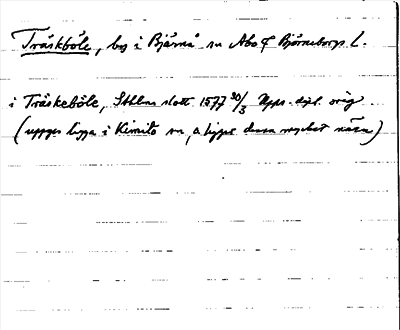 Träskböle, by i Bjärnå sn Åbo o Björneborgs L.
i Träskeböle, Sthlms slott 1577 30/3 Upps. dipl. orig
(uppges ligga i Kimito sn, ligger dessa mycket nära)